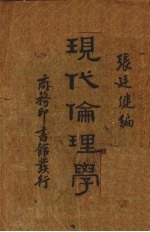 張廷健編
現代倫理學
商務印書館發行